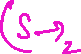 (S→2